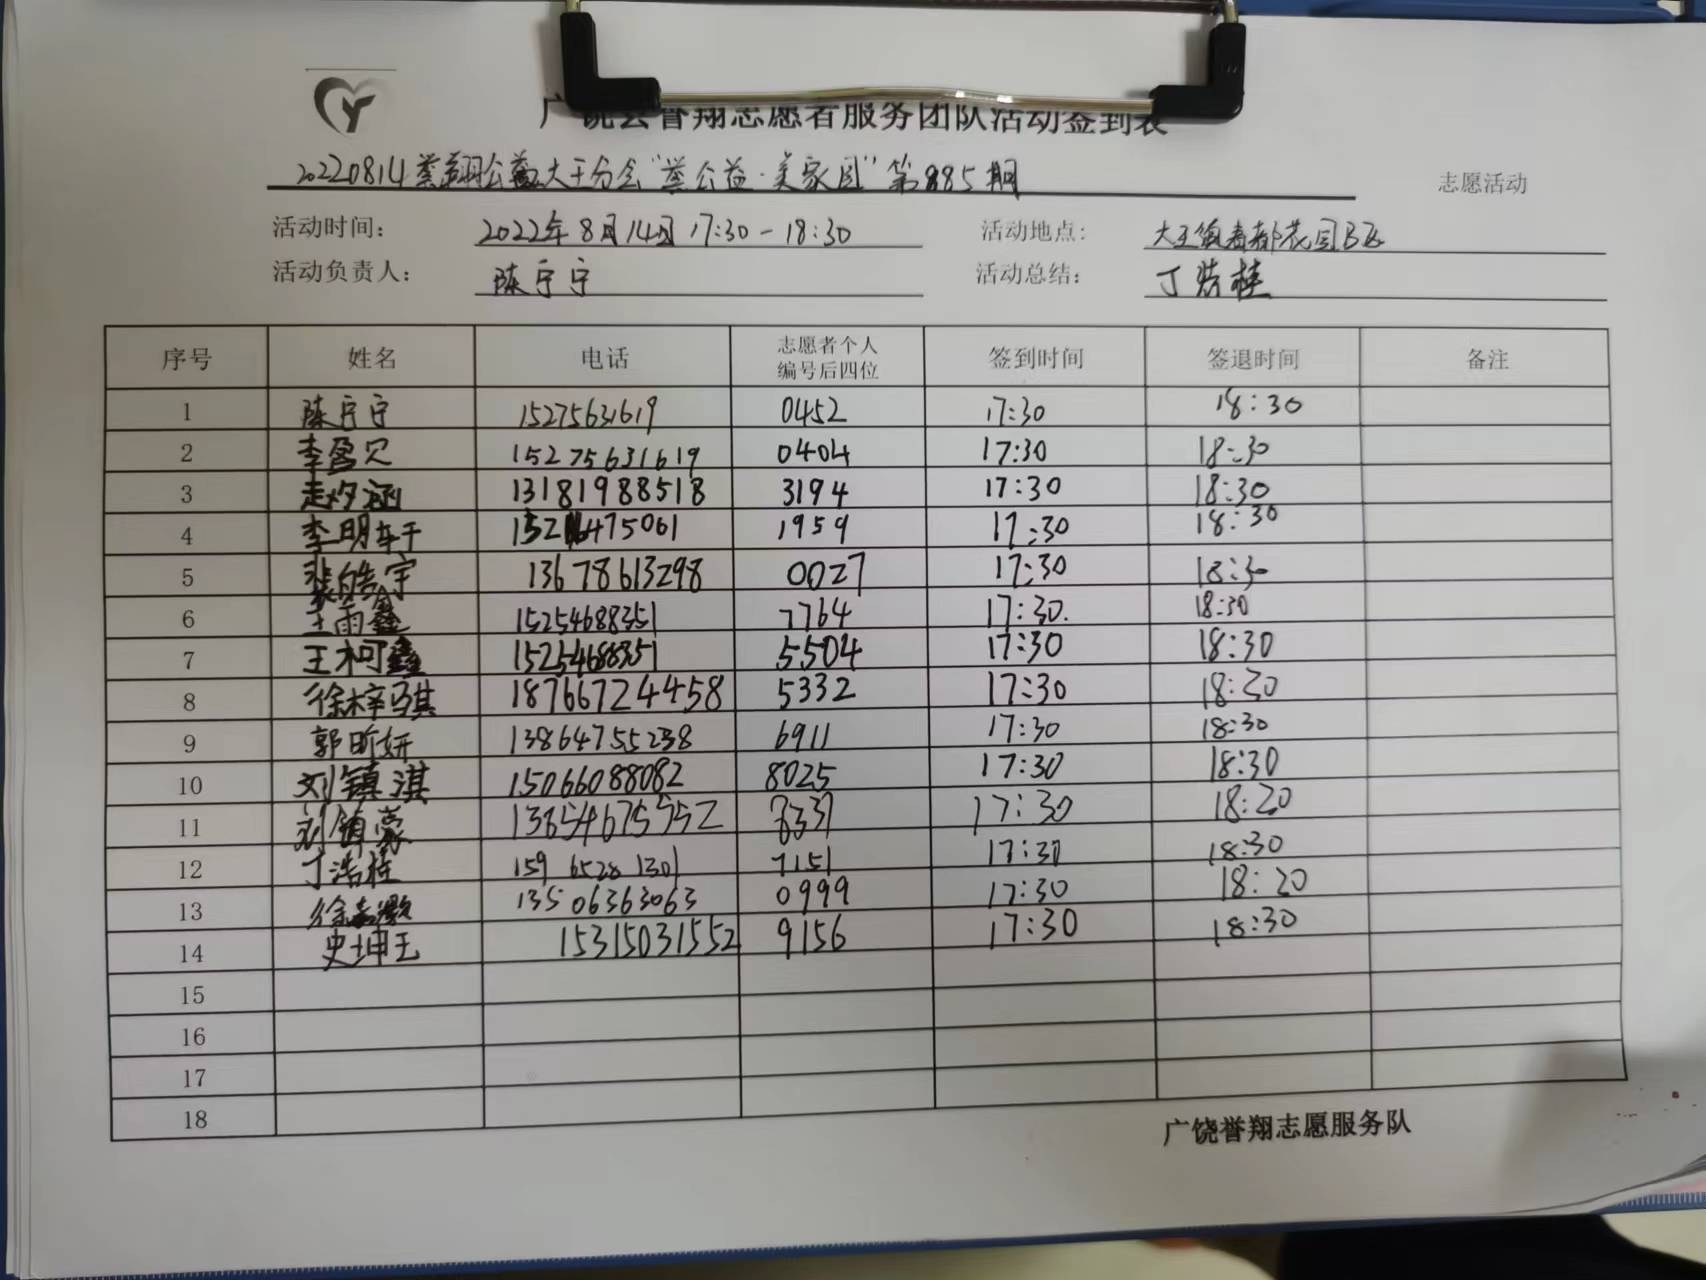 广饶县誉翔志愿者服务团队活动签到表
20220814誉翔公益大王分会"誉公益·美家园"第885期 志愿活动
活动时间： 2022年8月14日 17:30-18:30 活动地点： 大王镇春都花园B区
活动负责人： 陈宁宁 活动总结： 丁浩桂
序号 姓名 电话 志愿者个人编号后四位 签到时间 签退时间 备注
1 陈宁宁 15275631619 0452 17:30 18:30
2 李盈贝 15275631619 0404 17:30 18:30
3 赵夕涵 13181988518 3194 17:30 18:30
4 李明轩 1959 17:30 18:30
5 裴皓宇 13678613298 0027 17:30 18:30
6 王雨鑫 15254688351 7764 17:30. 18:30
7 王柯鑫 15254688351 5504 17:30 18:30
8 徐梓骐 18766724458 5332 17:30 18:30
9 郭昕妍 13864755238 6911 17:30 18:30
10 刘镇淇 15066088082 8025 17:30 18:30
11 刘镇豪 8337 17:30 18:20
12 丁浩桂 159 6528 1301 7151 17:30 18:30
13 徐 13506363063 0999 17:30 18:20
14 史坤玉 15315031552 9156 17:30 18:30
15
16
17
18
广饶誉翔志愿服务队